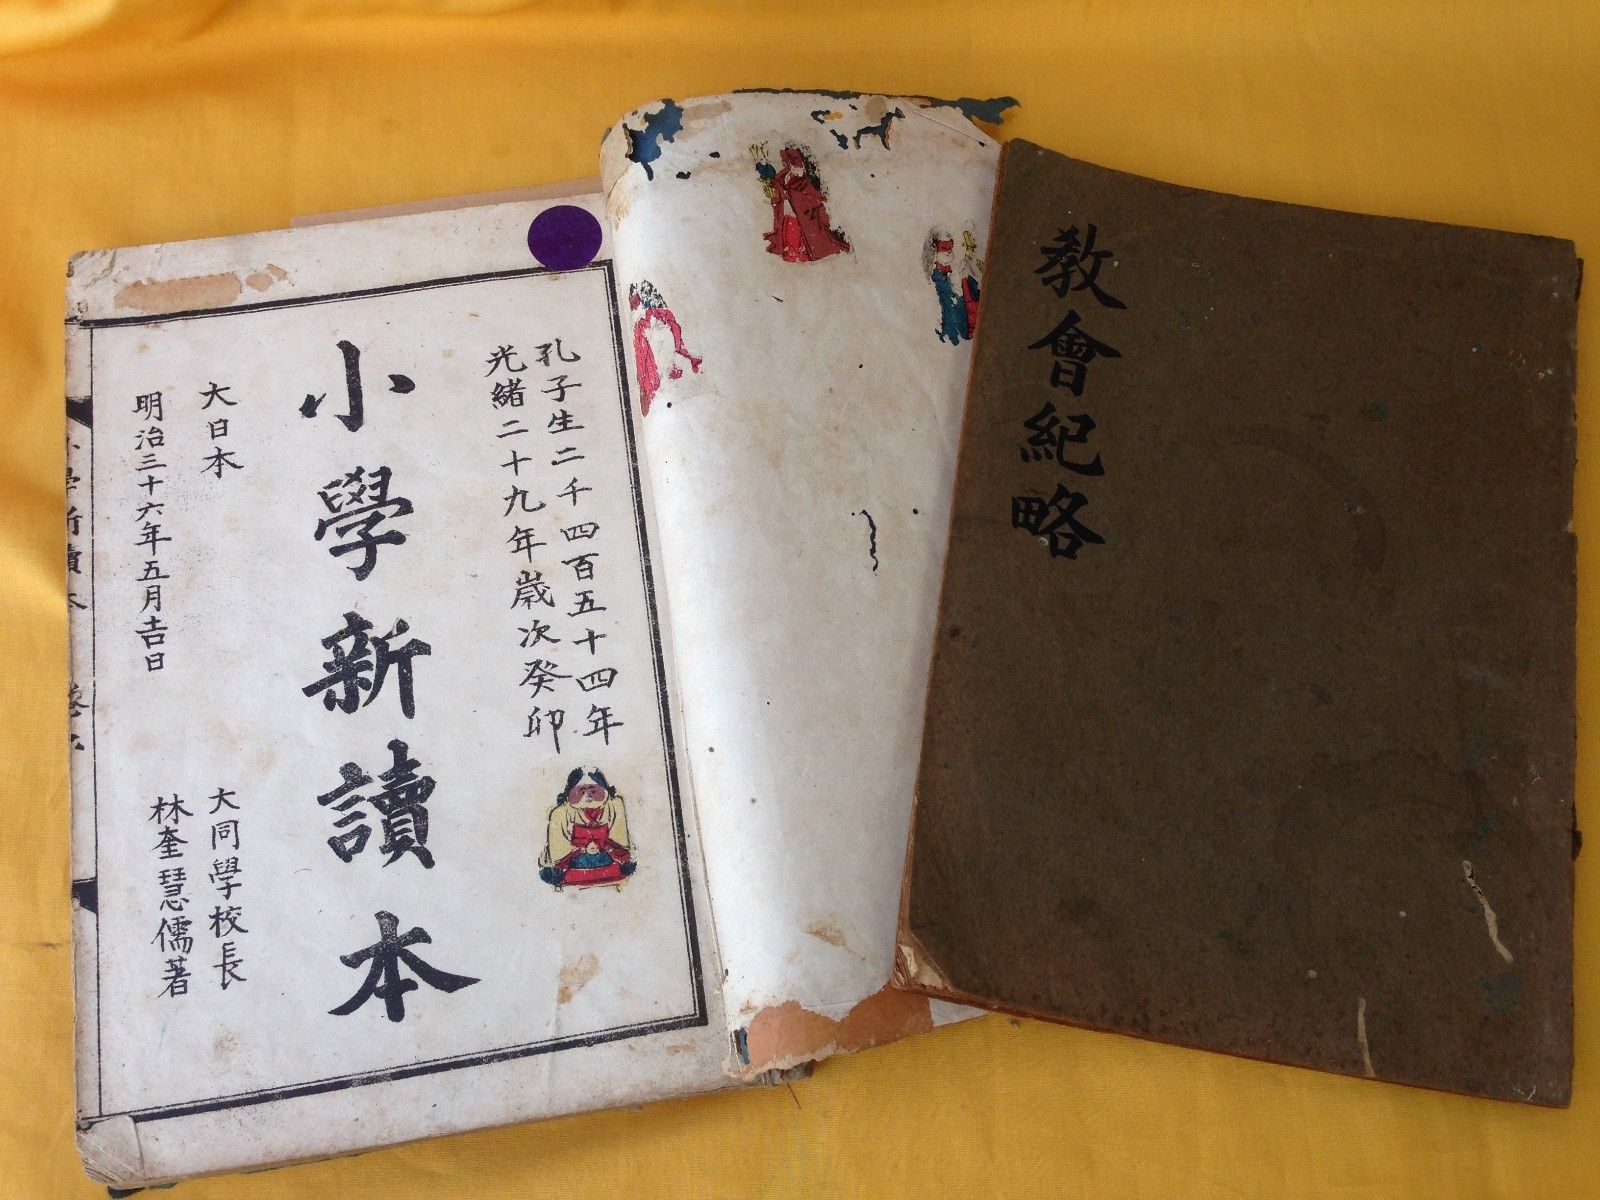 孔子生二千四百五十四年
光緒二十九年歲次癸卯
小學新讀本
大日本
明治三十六年五月吉日
大同學校長
林奎慧儒著
小學新讀本
教會紀略